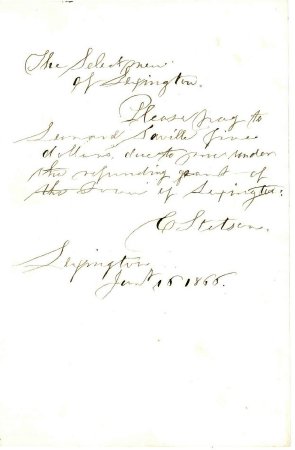 The Selectmen
of Lexington.
Please pay to
Leonard Saville five
dollars, due to me under
the refunding part of
the town of Lexington.
C Stetson.
Lexington
Jany 16 1866.